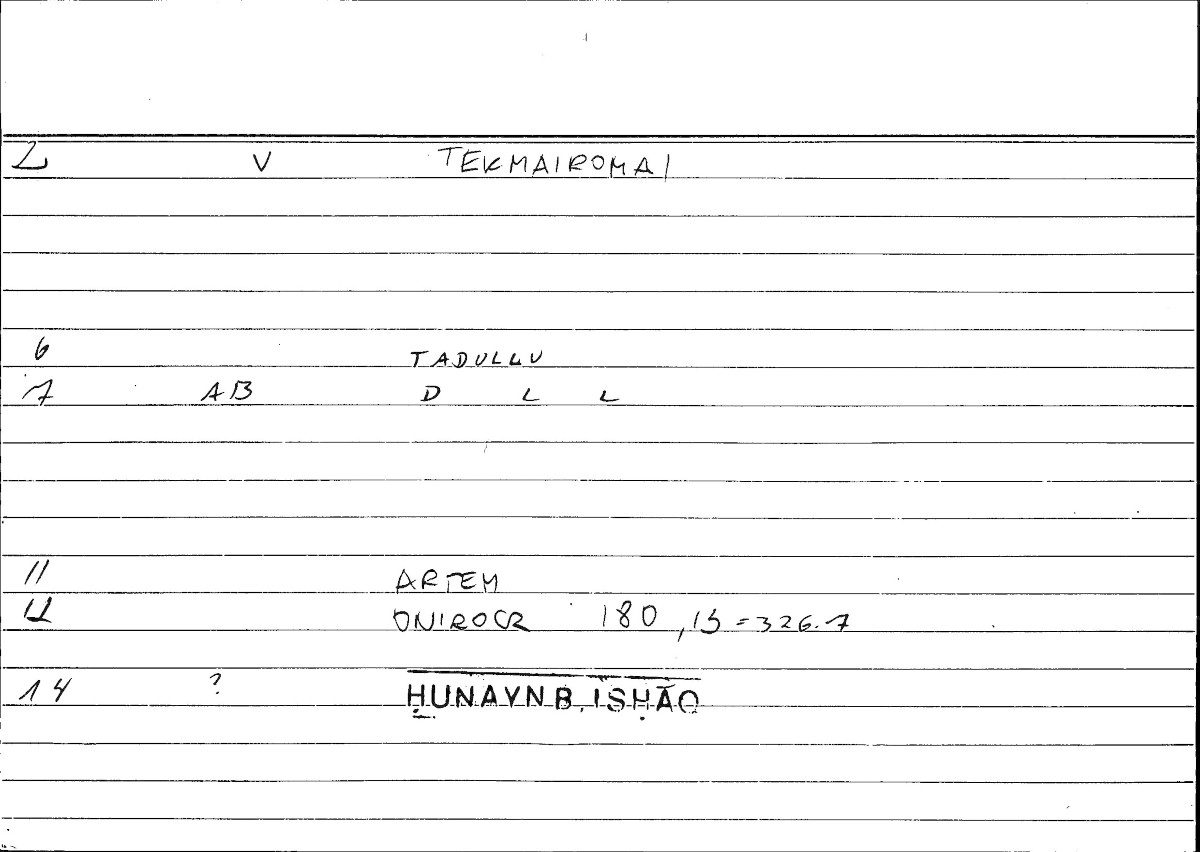 2 V TEKMAIROMAI
6 TADULLU
7 AB D L L
11 ARTEM
12 ONIROCR 180,15=326.7
14 ? ḤUNAYN B. ISḤĀQ